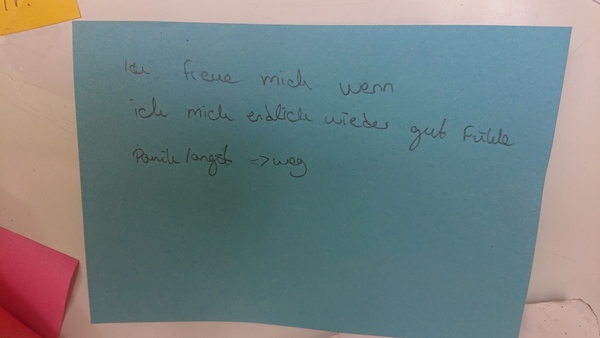 Ich freue mich wenn
ich mich endlich wieder gut fühle
Panik/angst => weg